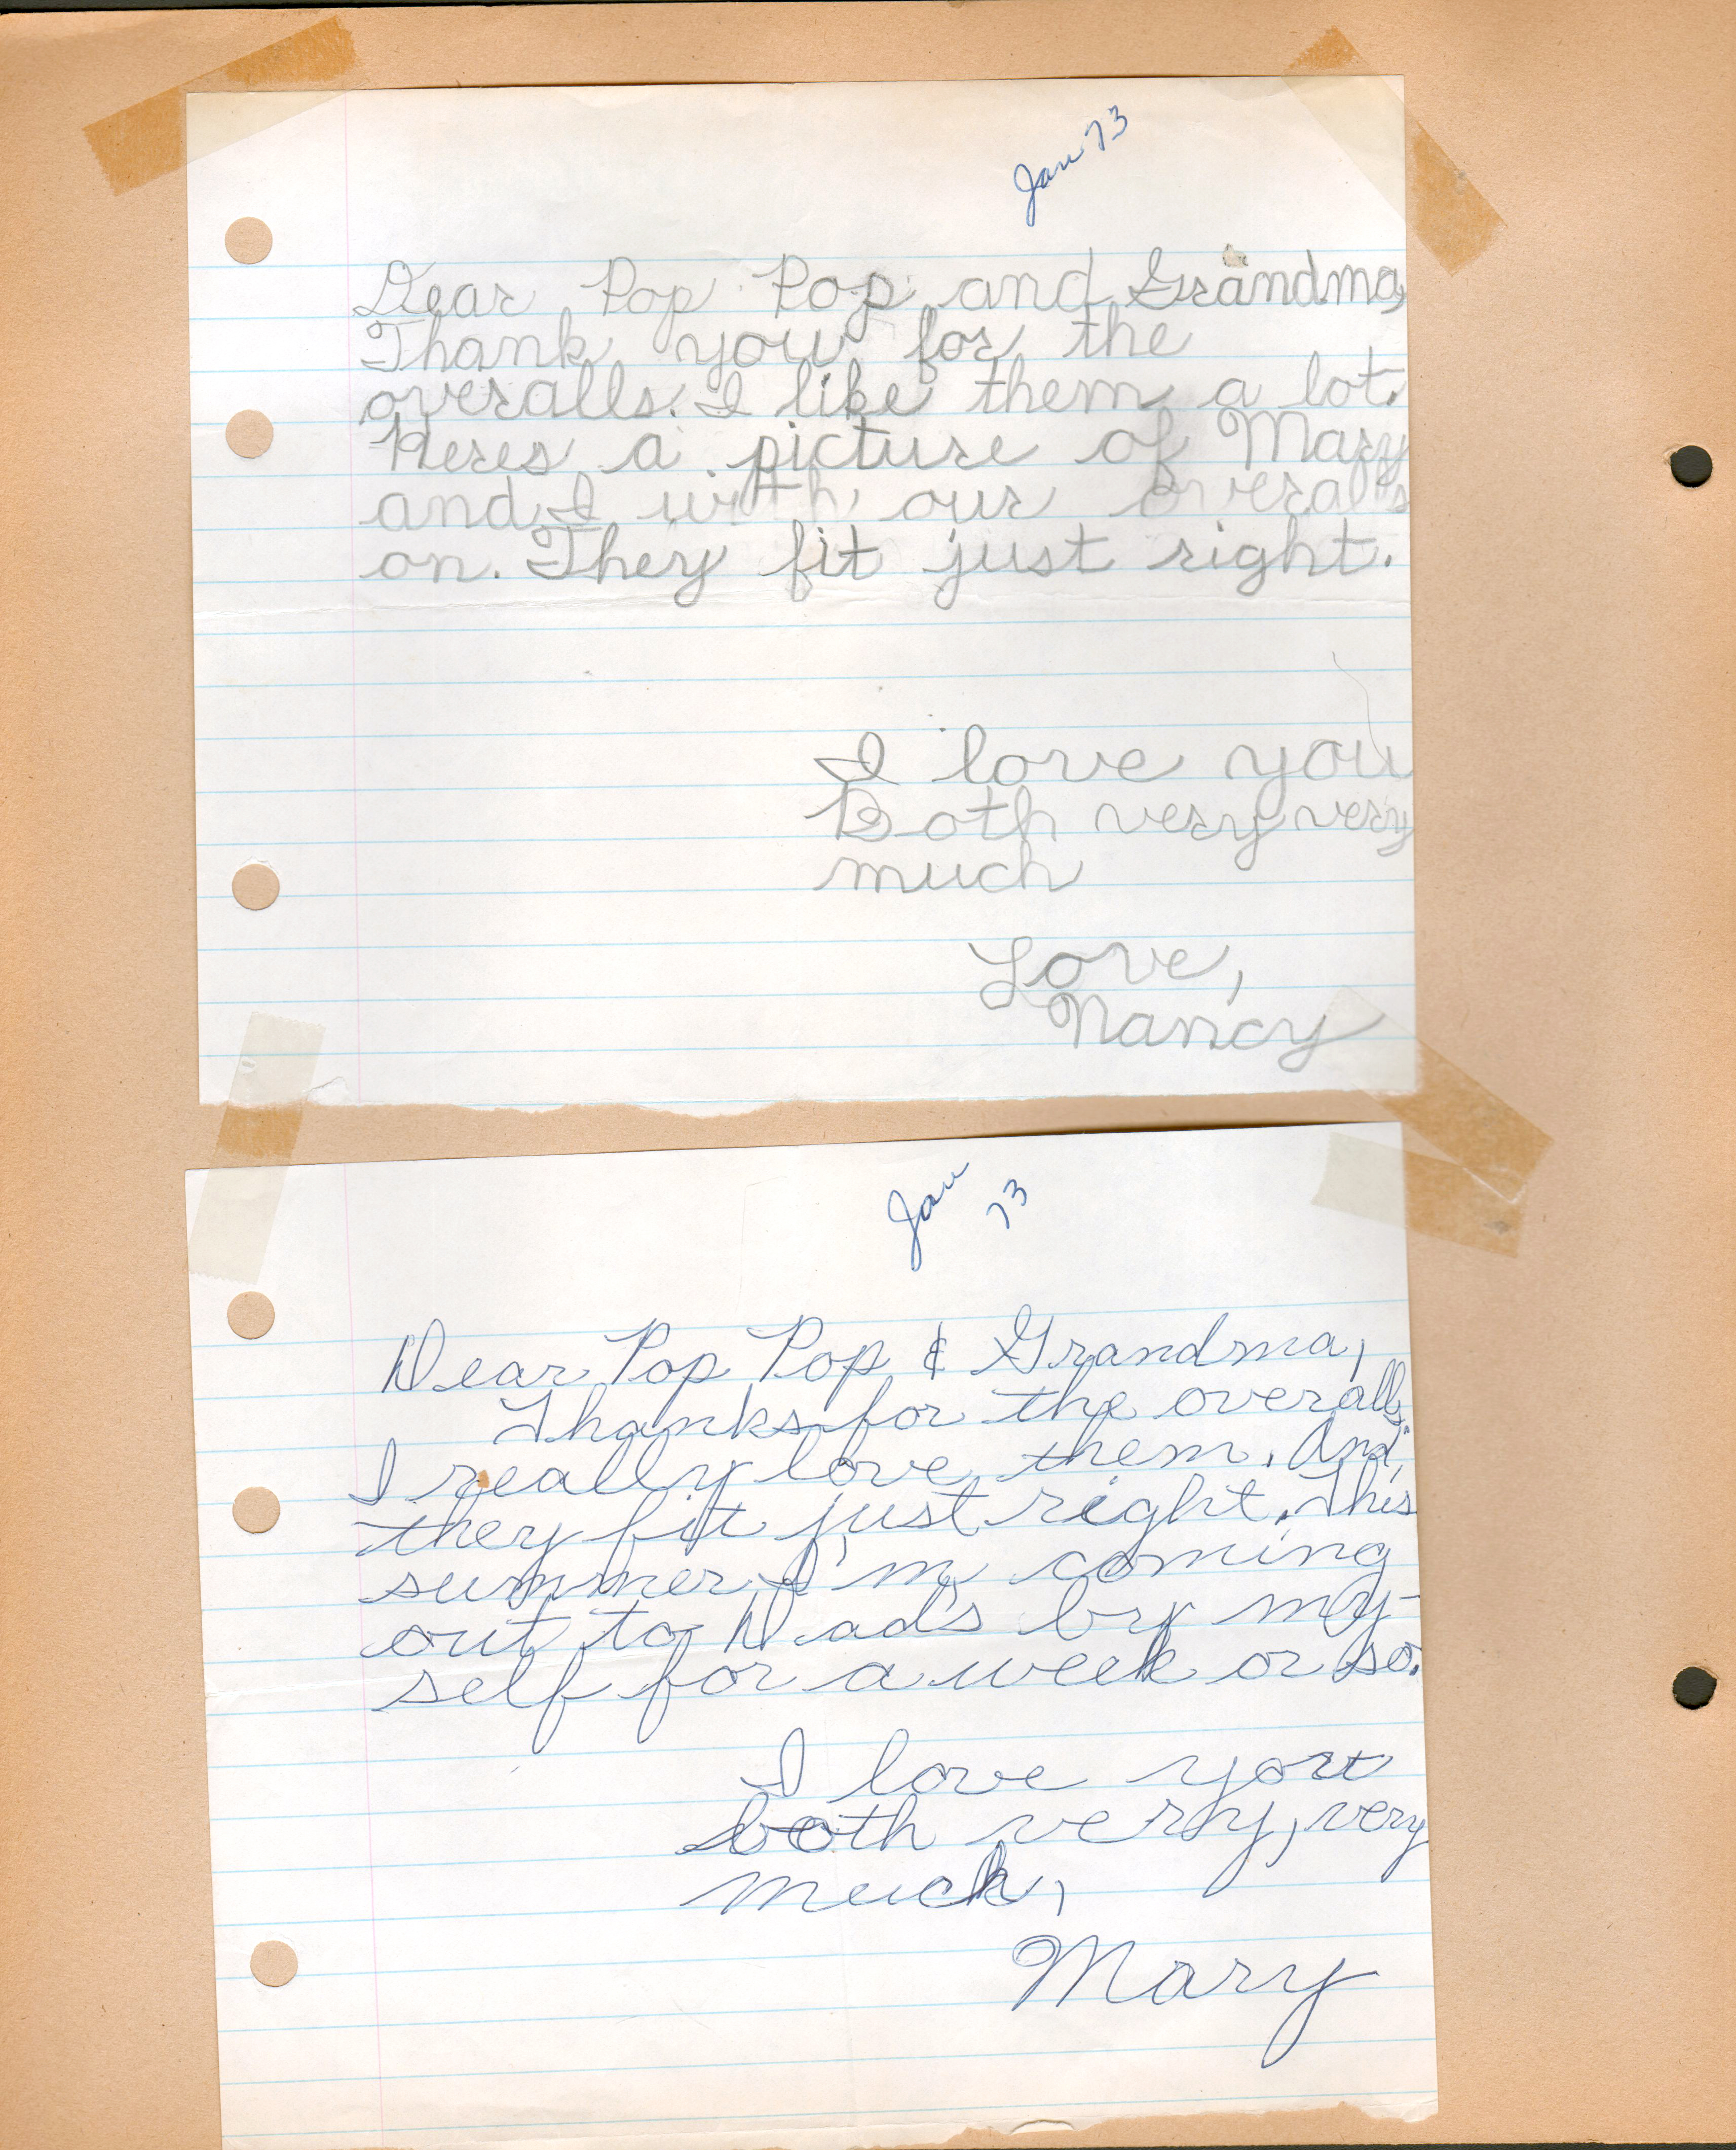 Jan 73
Dear Pop Pop and Grandma,
Thank you for the
overalls. I like them a lot.
Heres a picture of Mary
and I with our overalls
on. They fit just right.
I love you
Both very very
much
Love,
Nancy
Jan
73
Dear Pop Pop & Grandma,
Thanks for the overalls.
I really love them. And,
they fit just right. This
summer I'm coming
out to Dad's by my-
self for a week or so.
I love you
both very, very
much,
Mary